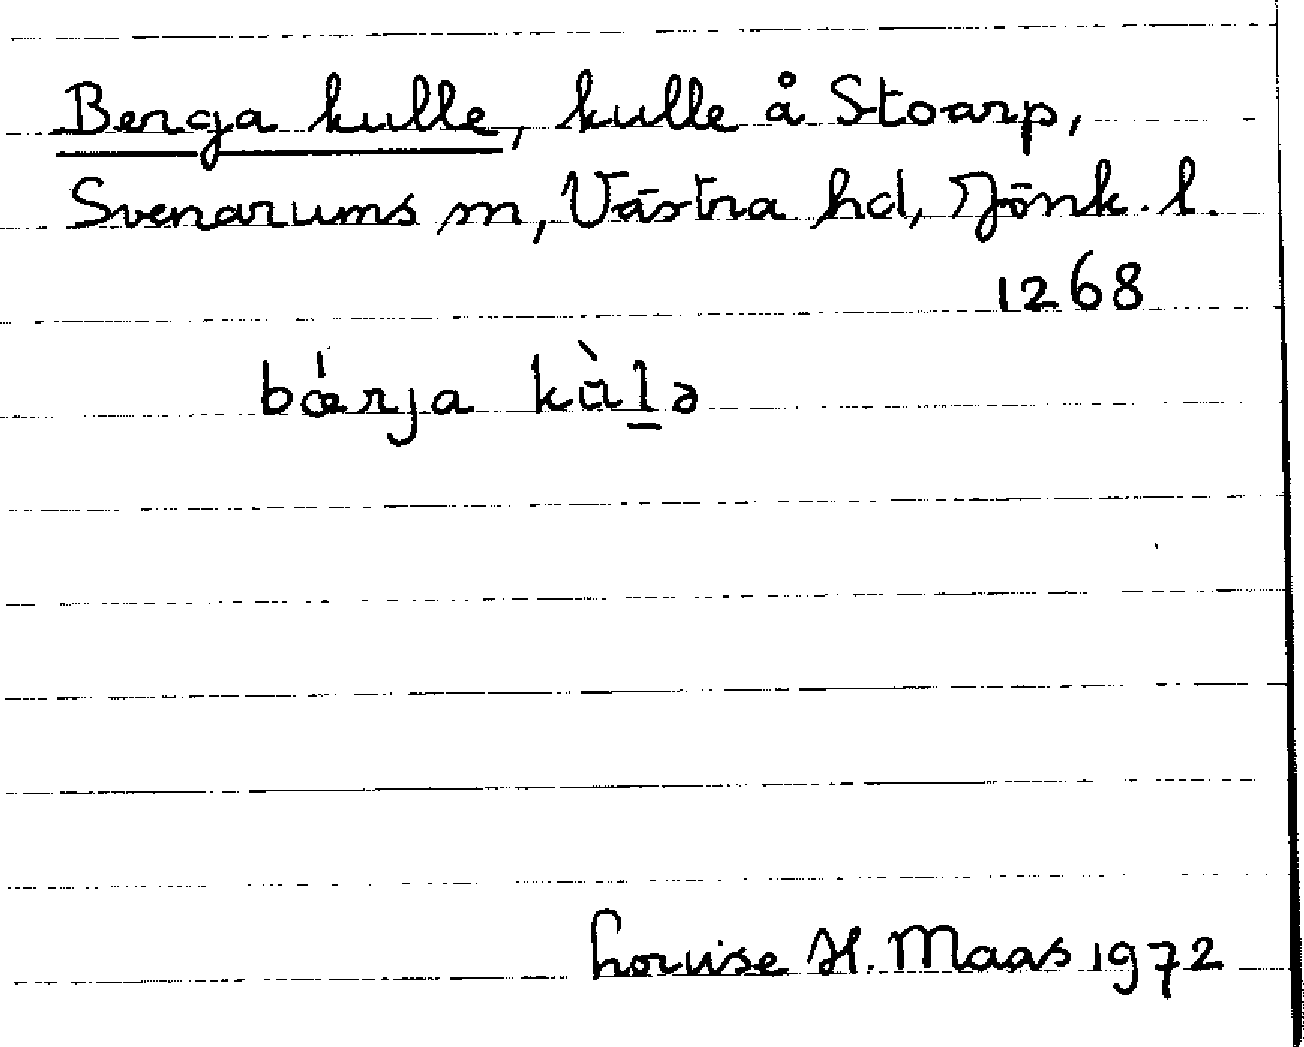 Berga kulle, kulle å Stoarp,
Svenarums sn, Västra hd, Jönk. l.
1268
bǽrja kùl̲ə
Louise H. Maas 1972